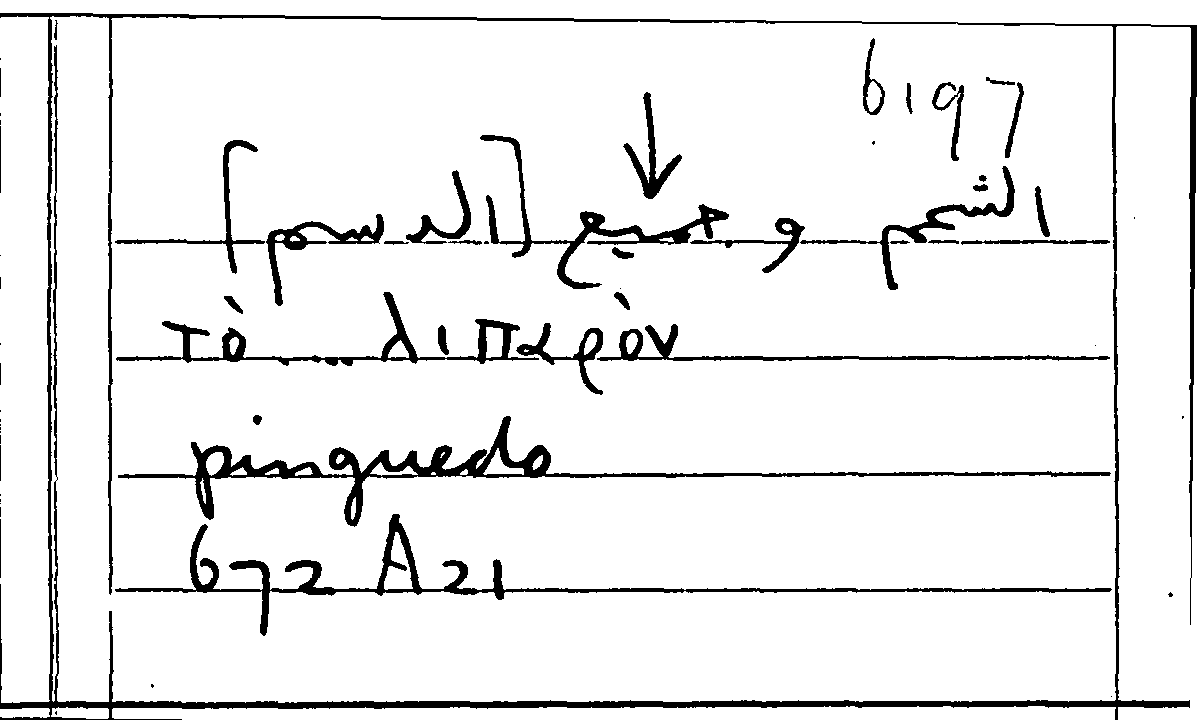 6197
↓
الشحم و جميع [الدسم]
τὸ .... λιπαρὸν
pinguedo
672 A 21